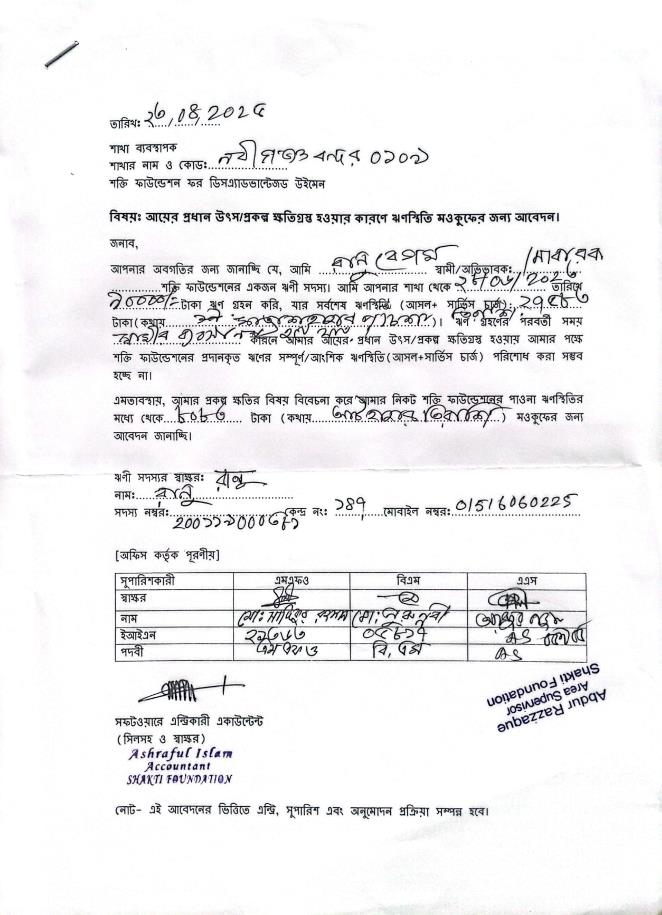 তারিখ: ২৩,০৪,২০২৫
শাখা ব্যবস্থাপক
শাখার নাম ও কোড: নবীগঞ্জ বন্দর ০১০১
শক্তি ফাউন্ডেশন ফর ডিসএ্যাডভান্টেজড উইমেন
বিষয়: আয়ের প্রধান উৎস/প্রকল্প ক্ষতিগ্রস্থ হওয়ার কারণে ঋণস্থিতি মওকুফের জন্য আবেদন।
জনাব,
আপনার অবগতির জন্য জানাচ্ছি যে, আমি রানু বেগম স্বামী/অভিভাবক:
শক্তি ফাউন্ডেশনের একজন ঋণী সদস্য। আমি আপনার শাখা থেকে তারিখে
টাকা ঋণ গ্রহন করি, যার সর্বশেষ ঋণস্থিতি (আসল+ সার্ভিস চার্জ):
টাকা(কথায় )। ঋণ গ্রহণের পরবর্তী সময়
কারনে আমার আয়ের প্রধান উৎস/প্রকল্প ক্ষতিগ্রস্থ হওয়ায় আমার পক্ষে
শক্তি ফাউন্ডেশনের প্রদানকৃত ঋণের সম্পূর্ণ/আংশিক ঋণস্থিতি(আসল+সার্ভিস চার্জ) পরিশোধ করা সম্ভব
হচ্ছে না।
এমতাবস্থায়, আমার প্রকল্প ক্ষতির বিষয় বিবেচনা করে আমার নিকট শক্তি ফাউন্ডেশনের পাওনা ঋণস্থিতির
মধ্যে থেকে ৮০৮৩ টাকা (কথায় আট হাজার তিরাশি) মওকুফের জন্য
আবেদন জানাচ্ছি।
ঋণী সদস্যর স্বাক্ষর: রানু
নাম: রানু
সদস্য নম্বর: কেন্দ্র নং: মোবাইল নম্বর: 01516060225
[অফিস কর্তৃক পূরণীয়]
সুপারিশকারী এমএফও বিএম এএস
স্বাক্ষর
নাম মো: মো: নুরুন্নবী
ইআইএন
পদবী এম এফ ও বি, এম AS
Abdur Razzaque
Area Supervisor
Shakti Foundation
সফটওয়ারে এন্ট্রিকারী একাউন্টেন্ট
(সিলসহ ও স্বাক্ষর)
Ashraful Islam
Accountant
SHAKTI FOUNDATION
নোট- এই আবেদনের ভিত্তিতে এন্ট্রি, সুপারিশ এবং অনুমোদন প্রক্রিয়া সম্পন্ন হবে।